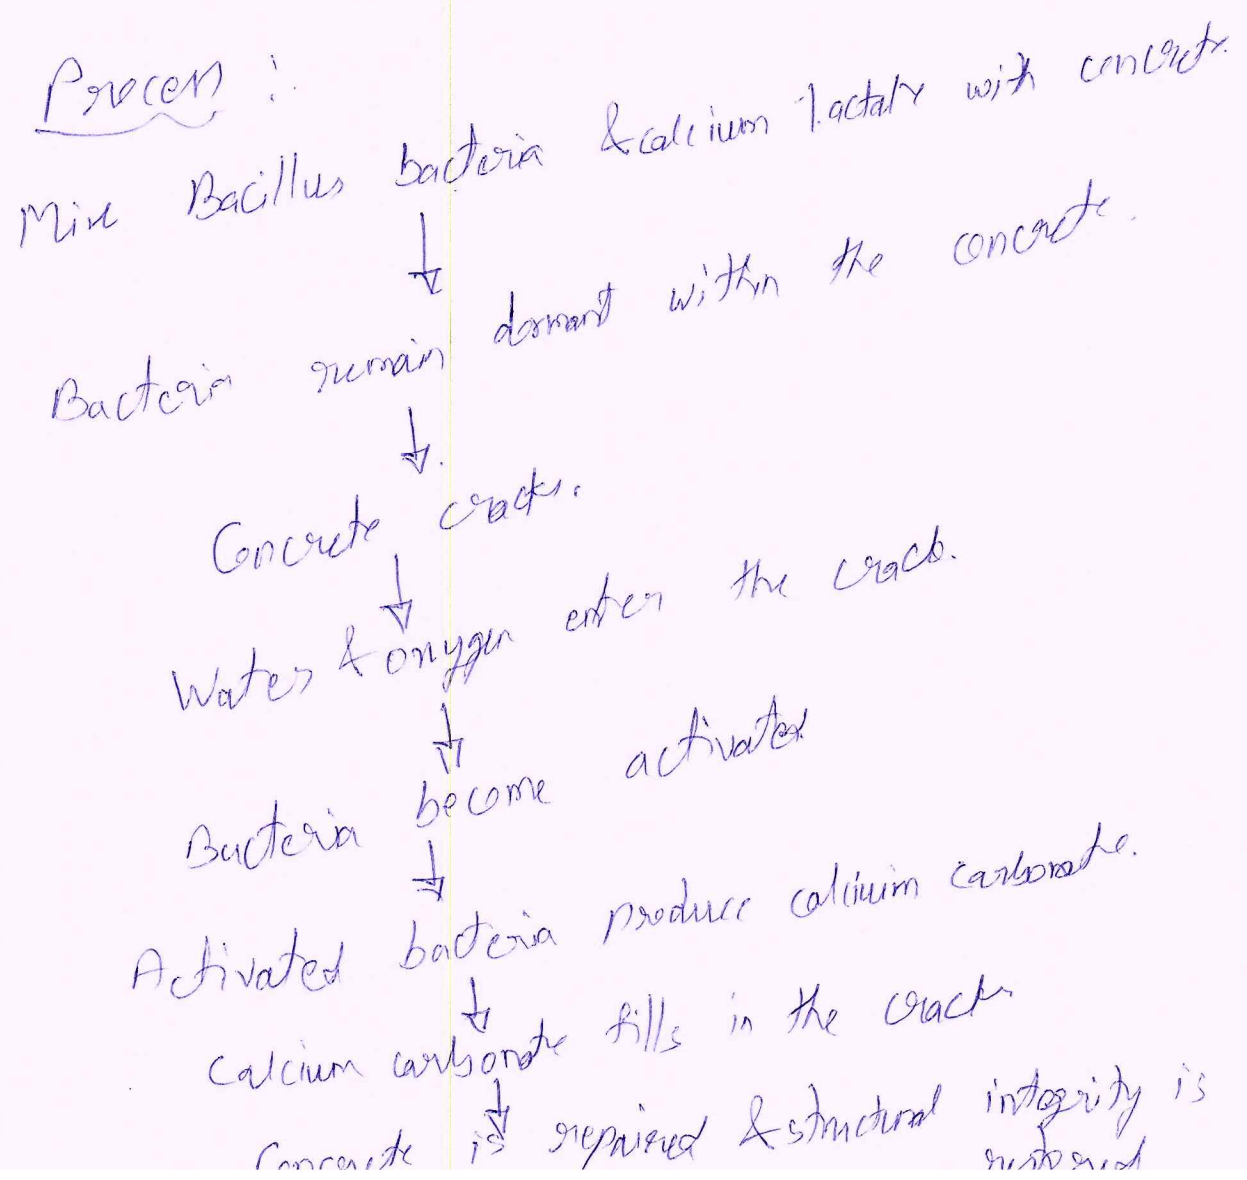 Process :
Mix Bacillus bacteria & calcium lactate with concrete.
Bacteria remain dormant within the concrete.
Concrete cracks.
Water & oxygen enter the crack.
Bacteria become activated
Activated bacteria produce calcium carbonate.
Calcium carbonate fills in the cracks
Concrete is repaired & structural integrity is
restored